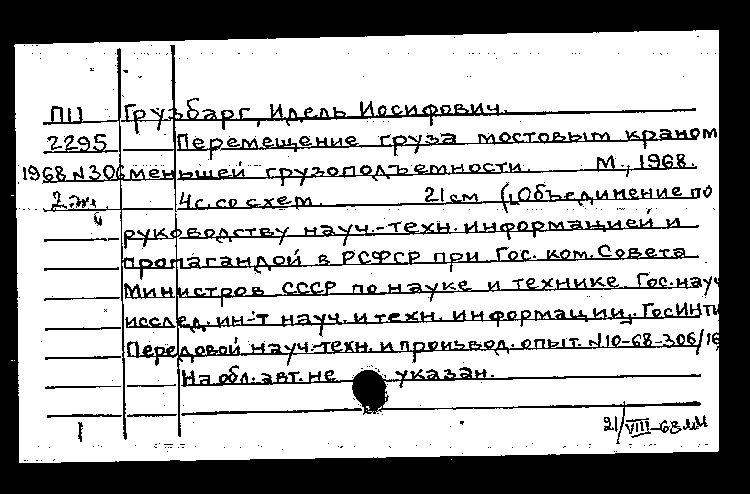 ПП Грузбарг, Идель Иосифович.
2295 Перемещение груза мостовым краном
1968 N306 меньшей грузоподъемности. М., 1968.
4с. со схем. 21 см (Объединение по
руководству науч.-техн. информацией и
пропагандой в РСФСР при Гос. ком. Совета
Министров СССР по науке и технике. Гос. науч
исслед. ин-т науч. и техн. информации, ГосИНТИ
Передовой науч.-техн. и производ. опыт. N10-68-306/16
На обл. авт. не указан.
21/VIII-68